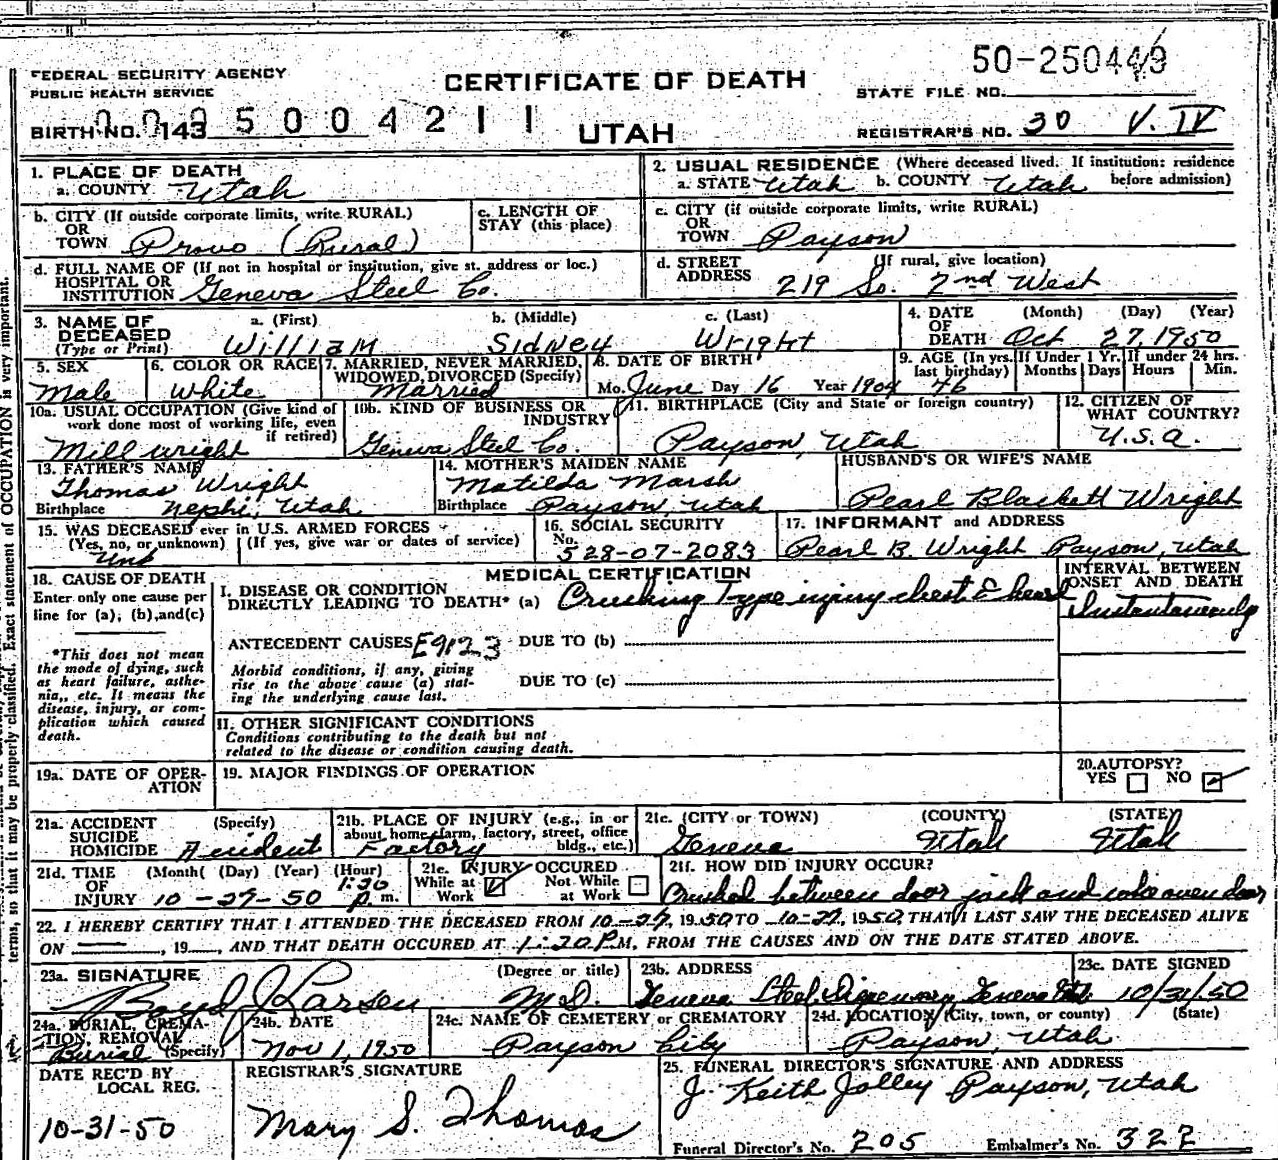 50-250449
FEDERAL SECURITY AGENCY
PUBLIC HEALTH SERVICE
CERTIFICATE OF DEATH
STATE FILE NO.
BIRTH NO. 143
0095004211
UTAH
REGISTRAR'S NO. 30 V. IV
1. PLACE OF DEATH
a. COUNTY Utah
2. USUAL RESIDENCE (Where deceased lived. If institution: residence before admission)
a. STATE Utah b. COUNTY Utah
b. CITY (If outside corporate limits, write RURAL) OR TOWN Provo (Rural)
c. LENGTH OF STAY (this place)
c. CITY (if outside corporate limits, write RURAL) OR TOWN Payson
d. FULL NAME OF (If not in hospital or institution, give st. address or loc.) HOSPITAL OR INSTITUTION Geneva Steel Co.
d. STREET ADDRESS (If rural, give location) 219 So. 2nd West
3. NAME OF DECEASED (Type or Print)
a. (First) William b. (Middle) Sidney c. (Last) Wright
4. DATE OF DEATH (Month) (Day) (Year) Oct 27, 1950
5. SEX Male
6. COLOR OR RACE White
7. MARRIED, NEVER MARRIED, WIDOWED, DIVORCED (Specify) Married
8. DATE OF BIRTH Mo. June Day 16 Year 1904
9. AGE (In yrs. last birthday) 46
If Under 1 Yr. Months Days
If under 24 hrs. Hours Min.
10a. USUAL OCCUPATION (Give kind of work done most of working life, even if retired) Mill wright
10b. KIND OF BUSINESS OR INDUSTRY Geneva Steel Co.
11. BIRTHPLACE (City and State or foreign country) Payson, Utah
12. CITIZEN OF WHAT COUNTRY? U.S.A.
13. FATHER'S NAME Thomas Wright
Birthplace Nephi, Utah
14. MOTHER'S MAIDEN NAME Matilda Marsh
Birthplace Payson, Utah
HUSBAND'S OR WIFE'S NAME Pearl Blackett Wright
15. WAS DECEASED ever in U.S. ARMED FORCES
(Yes, no, or unknown) (If yes, give war or dates of service)
Unk
16. SOCIAL SECURITY No. 528-07-2083
17. INFORMANT and ADDRESS Pearl B. Wright Payson, Utah
18. CAUSE OF DEATH
Enter only one cause per line for (a), (b), and (c)
*This does not mean the mode of dying, such as heart failure, asthenia, etc. It means the disease, injury, or complication which caused death.
MEDICAL CERTIFICATION
INTERVAL BETWEEN ONSET AND DEATH
I. DISEASE OR CONDITION DIRECTLY LEADING TO DEATH* (a) Crushing Type injury chest & heart
Instantaneously
ANTECEDENT CAUSES E9123 DUE TO (b)
Morbid conditions, if any, giving rise to the above cause (a) stating the underlying cause last.
DUE TO (c)
II. OTHER SIGNIFICANT CONDITIONS
Conditions contributing to the death but not related to the disease or condition causing death.
19a. DATE OF OPERATION
19. MAJOR FINDINGS OF OPERATION
20. AUTOPSY? YES NO
21a. ACCIDENT SUICIDE HOMICIDE (Specify) Accident
21b. PLACE OF INJURY (e.g., in or about home, farm, factory, street, office bldg., etc.) Factory
21c. (CITY OR TOWN) (COUNTY) (STATE)
Geneva Utah Utah
21d. TIME OF INJURY (Month) (Day) (Year) (Hour) 10-27-50 1:20 p.m.
21e. INJURY OCCURED While at Work Not While at Work
21f. HOW DID INJURY OCCUR?
Crushed between door jack and coke oven door
22. I HEREBY CERTIFY THAT I ATTENDED THE DECEASED FROM 10-27, 1950 TO 10-27, 1950, THAT I LAST SAW THE DECEASED ALIVE
ON , 19 , AND THAT DEATH OCCURED AT 1:20 P.M, FROM THE CAUSES AND ON THE DATE STATED ABOVE.
23a. SIGNATURE (Degree or title)
Boyd J Larsen M.D.
23b. ADDRESS Geneva Steel Dispensary Geneva Utah
23c. DATE SIGNED 10/31/50
24a. BURIAL, CREMATION, REMOVAL (Specify) Burial
24b. DATE Nov 1, 1950
24c. NAME OF CEMETERY or CREMATORY Payson City
24d. LOCATION (City, town, or county) (State) Payson, Utah
DATE REC'D BY LOCAL REG. 10-31-50
REGISTRAR'S SIGNATURE Mary S. Thomas
25. FUNERAL DIRECTOR'S SIGNATURE AND ADDRESS
J. Keith Jolley Payson, Utah
Funeral Director's No. 205 Embalmer's No. 322
terms, so that it may be properly classified. Exact statement of OCCUPATION is very important.